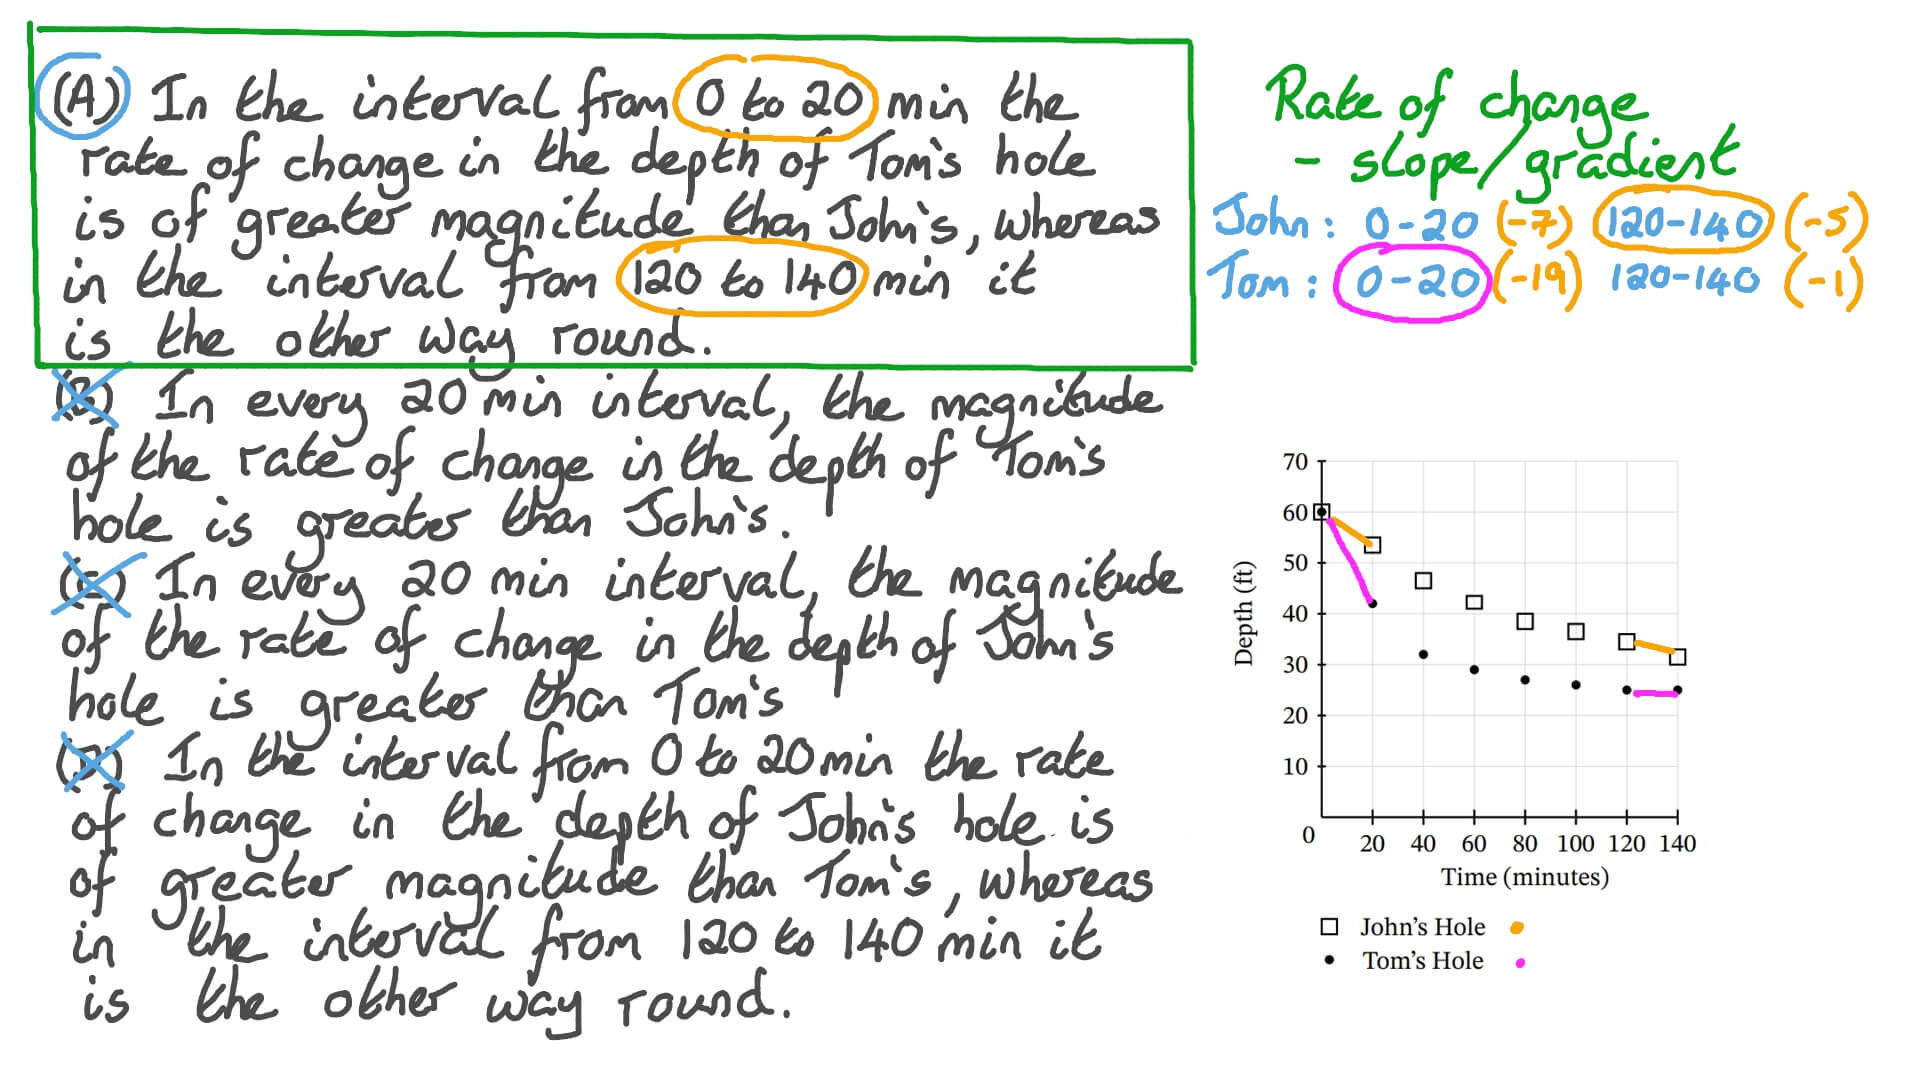 (A) In the interval from 0 to 20 min the
rate of change in the depth of Tom's hole
is of greater magnitude than John's, whereas
in the interval from 120 to 140 min it
is the other way round.
(B) In every 20 min interval, the magnitude
of the rate of change in the depth of Tom's
hole is greater than John's.
(C) In every 20 min interval, the magnitude
of the rate of change in the depth of John's
hole is greater than Tom's
(D) In the interval from 0 to 20 min the rate
of change in the depth of John's hole is
of greater magnitude than Tom's, whereas
in the interval from 120 to 140 min it
is the other way round.
Rate of change
- slope/gradient
John: 0-20 (-7) 120-140 (-5)
Tom: 0-20 (-19) 120-140 (-1)
70
60
50
40
30
20
10
0
Depth (ft)
20 40 60 80 100 120 140
Time (minutes)
John's Hole
Tom's Hole